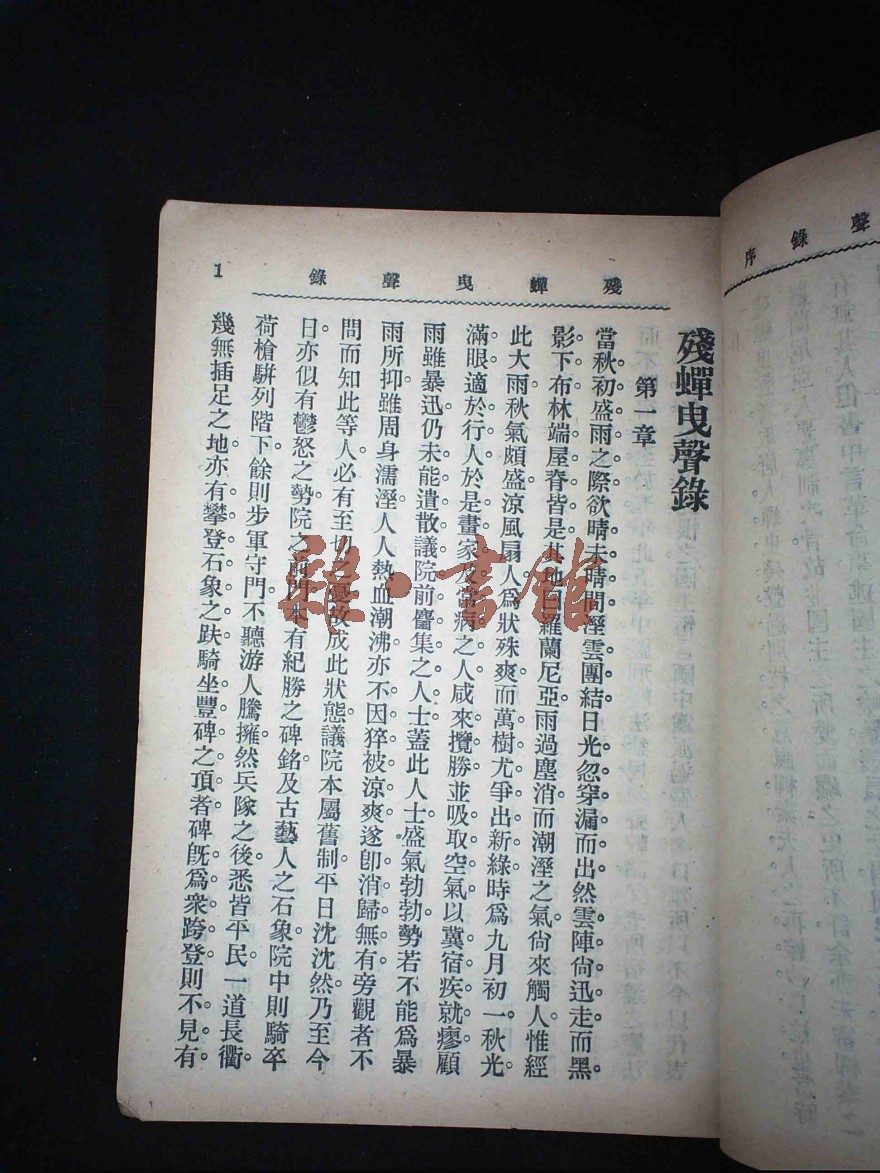 殘蟬曳聲錄
1
殘蟬曳聲錄
第一章
當秋初盛雨之際欲晴未晴間溼雲團結日光忽穿漏而出然雲陣尙迅走而黑
影下布林端屋脊皆是其地曰羅蘭尼亞雨過塵消而潮溼之氣尙來觸人惟經
此大雨秋氣頗盛涼風扇人爲狀殊爽而萬樹尤爭出新綠時爲九月初一秋光
滿眼適於行人於是畫家及當病之人咸來攬勝並吸取空氣以冀宿疾就瘳顧
雨雖暴迅仍未能遣散議院前麕集之人士蓋此人士盛氣勃勃勢若不能爲暴
雨所抑雖周身濡溼人人熱血潮沸亦不因猝被涼爽遂卽消歸無有旁觀者不
問而知此等人必有至切之憂故成此狀態議院本屬舊制平日沈沈然乃至今
日亦似有鬱怒之勢院之前門本有紀勝之碑銘及古藝人之石象院中則騎卒
荷槍騈列階下餘則步軍守門不聽游人騰擁然兵隊之後悉皆平民一道長衢
幾無插足之地亦有攀登石象之趺騎坐豐碑之頂者碑旣爲衆跨登則不見有
聲錄序
雜·書館